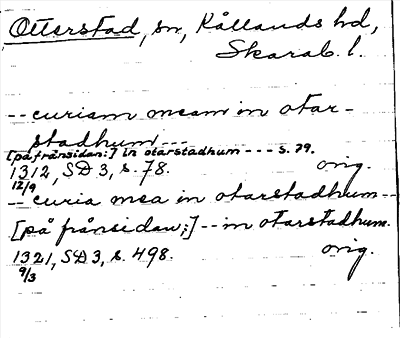 Otterstad, sn, Kållands hd,
Skarab. l.
-- curiam meam in otar-
stadhum ---
[på frånsidan:] in otarstadhum --- s. 79.
1312, SD 3, s. 78. orig.
12/9
-- curia mea in otarstadhum --
[på frånsidan:] -- in otarstadhum.
1321, SD 3, s. 498. orig.
9/3